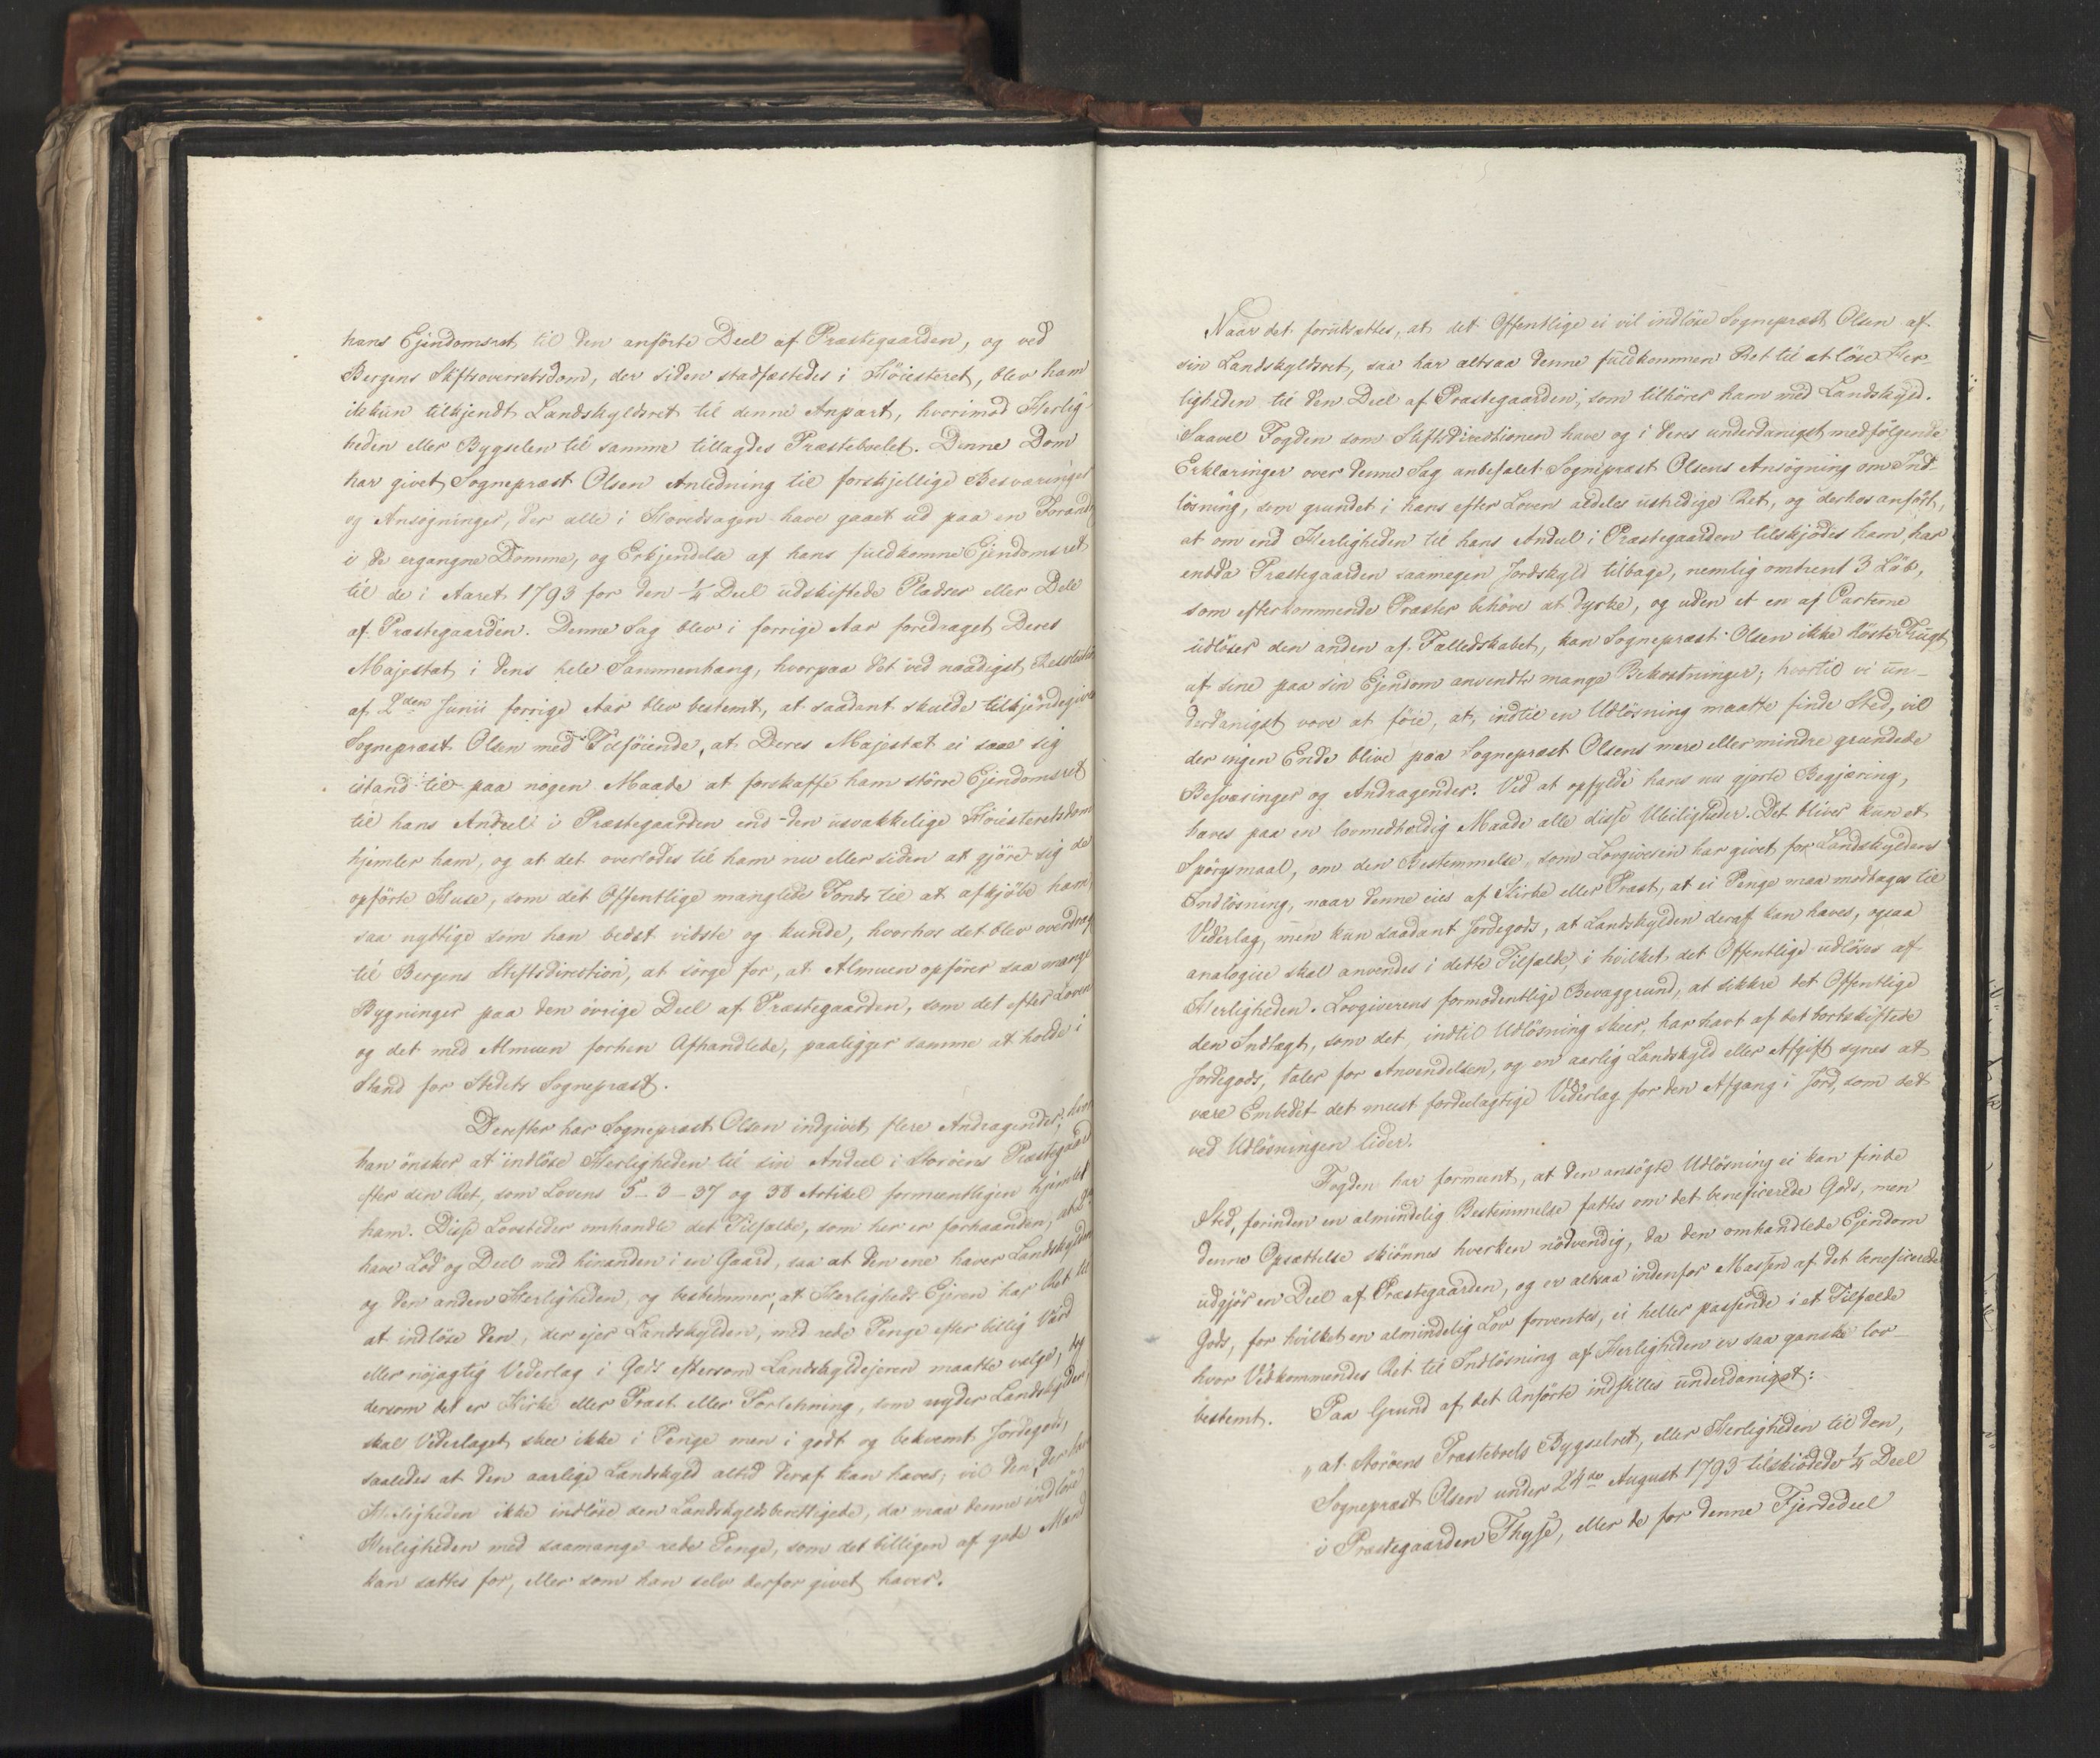 hans Ejendomsret til den anførte Deel af Præstegaarden, og ved
Bergens Stiftsoverretsdom, der siden stadfæstedes i Höiesteret, blev ham
ikkun tilkjendt Landskyldsret til denne Anpart, hvorimod Herlig-
heden eller Bygselen til samme tillagdes Præsteboelet. Denne Dom
har givet Sognepræst Olsen Anledning til forskjellige Besværinger
og Ansøgninger, der alle i Hovedsagen have gaaet ud paa en Forandr
i de ergangne Domme, og Erkjendelse af hans fuldkomne Ejendomsret
til de i Aaret 1793 for den 1/4 Deel udskiftede Pladser eller Dele
af Præstegaarden. Denne Sag blev i forrige Aar foredraget Deres
Majestæt i dens hele Sammenhang, hvorpaa det ved naadigst Resolution
af 2den Junii forrige Aar blev bestemt, at saadant skulde tilkjendegives
Sognepræst Olsen med Tilføiende, at Deres Majestæt ei saae sig
istand til paa nogen Maade at forskaffe ham større Ejendomsret
til hans Andeel i Præstegaarden end den usvækkelige Höiesteretsdom
hjemler ham, og at det overlodes til ham nu eller siden at gjöre sig de
opförte Huse, som det Offentlige manglede Fonds til at afkjöbe ham,
saa nyttige som han bedst vidste og kunde, hvorhos det blev overdrag
til Bergens Stiftsdirection, at sörge for, at Almuen opförer saa mange
Bygninger paa den övrige Deel af Præstegaarden, som det efter Loven
og det med Almuen forhen Afhandlede, paaligger samme at holde i
Stand for Stedets Sognepræst.
Derefter har Sognepræst Olsen indgivet flere Andragender, hvor
han önsker at indlöse Herligheden til sin Andeel i Storöens Præstegaard
efter den Ret, som Lovens 5-3-37 og 38 Artikel formeentligen hjemlet
ham. Disse Lovsteder omhandle det Tilfælde, som her er forhaanden, at 2de
have Lod og Deel med hinanden i en Gaard, saa at den ene haver Landskylden
og den anden Herligheden, og bestemmer, at Herligheds Ejeren har Ret til
at indlöse den, der ejer Landskylden, med rede Penge efter billig Værd
eller nöjagtig Vederlag i Gods eftersom Landskyldejeren maatte vælge;
dersom det er Kirke eller Præst eller Forlehning, som nyder Landskylden,
skal Vederlaget skee ikke i Penge men i godt og bekvemt Jordegods,
saaledes at den aarlige Landskyld altid deraf kan haves; vil den, der har
Herligheden ikke indlöse den Landskyldsberettigede, da maa denne indlöse
Herligheden med saamange rede Penge, som det billigen af gode Mænd
kan sættes for, eller som han selv derfor givet haver.
Naar det forudsættes, at det Offentlige ei vil indlöse Sognepræst Olsen af
sin Landskyldsret, saa har altsaa denne fuldkommen Ret til at löse Her-
ligheden til den Deel af Præstegaarden, som tilhörer ham med Landskyld.
Saavel Fogden som Stiftsdirectionen have og i deres underdanigst medfölgende
Erklæringer over denne Sag anbefalet Sognepræst Olsens Ansögning om Ind-
lösning, som grundet i hans efter Loven aldeles ustridige Ret, og derhos anfört,
at om end Herligheden til hans Andeel i Præstegaarden tilskjödes ham, har
endda Præstegaarden saamegen Jordskyld tilbage, nemlig omtrent 3 Löb,
som efterkommende Præster behöve at dyrke, og uden at en af Parterne
udlöser den anden af Fælledskabet, kan Sognepræst Olsen ikke höste Frugt
af sine paa sin Ejendom anvendte mange Bekostninger; hvortil vi un-
derdanigst vove at föie, at, indtil en Udlösning maatte finde Sted, vil
der ingen Ende blive paa Sognepræst Olsens mere eller mindre grundede
Besværinger og Andragender. Ved at opfylde hans nu gjorte Begjæring,
hæves paa en lovmedholdig Maade alle disse Ubeiligheder. Det bliver kun et
Spörgsmaal, om den Bestemmelse, som Lovgiveren har givet for Landskyldens
Indlösning, naar denne eies af Kirke eller Præst, at ei Penge maa modtages til
Vederlag, men kun saadant Jordegods, at Landskylden deraf kan haves, ogsaa
analogice skal anvendes i dette Tilfælde, i hvilket det Offentlige udlöses af
Herligheden. Lovgiverens formodentlige Bevæggrund, at sikkre det Offentlige
den Indtægt, som det, indtil Udlösning skeer, har havt af det bortskiftede
Jordegods, taler for Anvendelsen, og en aarlig Landskyld eller Afgift synes at
være Embedet det meest fordeelagtige Vederlag for den Afgang i Jord, som det
ved Udlösningen lider.
Fogden har formeent, at den ansögte Udlösning ei kan finde
Sted, forinden en almindelig Bestemmelse fattes om det beneficerede Gods, men
denne Opsættelse skiönnes hverken nödvendig, da den omhandlede Ejendom
udgjör en Deel af Præstegaarden, og er altsaa indenfor Massen af det beneficerede
Gods, for hvilket en almindelig Lov forventes, ei heller passende i et Tilfælde
hvor Vedkommendes Ret til Indlösning af Herligheden er saa ganske lov-
bestemt. Paa Grund af det Anförte indstilles underdanigst:
"at Storöens Præsteboels Bygselret, eller Herligheden til den,
Sognepræst Olsen under 24de August 1793 tilskiödede 1/4 Deel
i Præstegaarden Thysse, eller de for denne Fjerdedeel